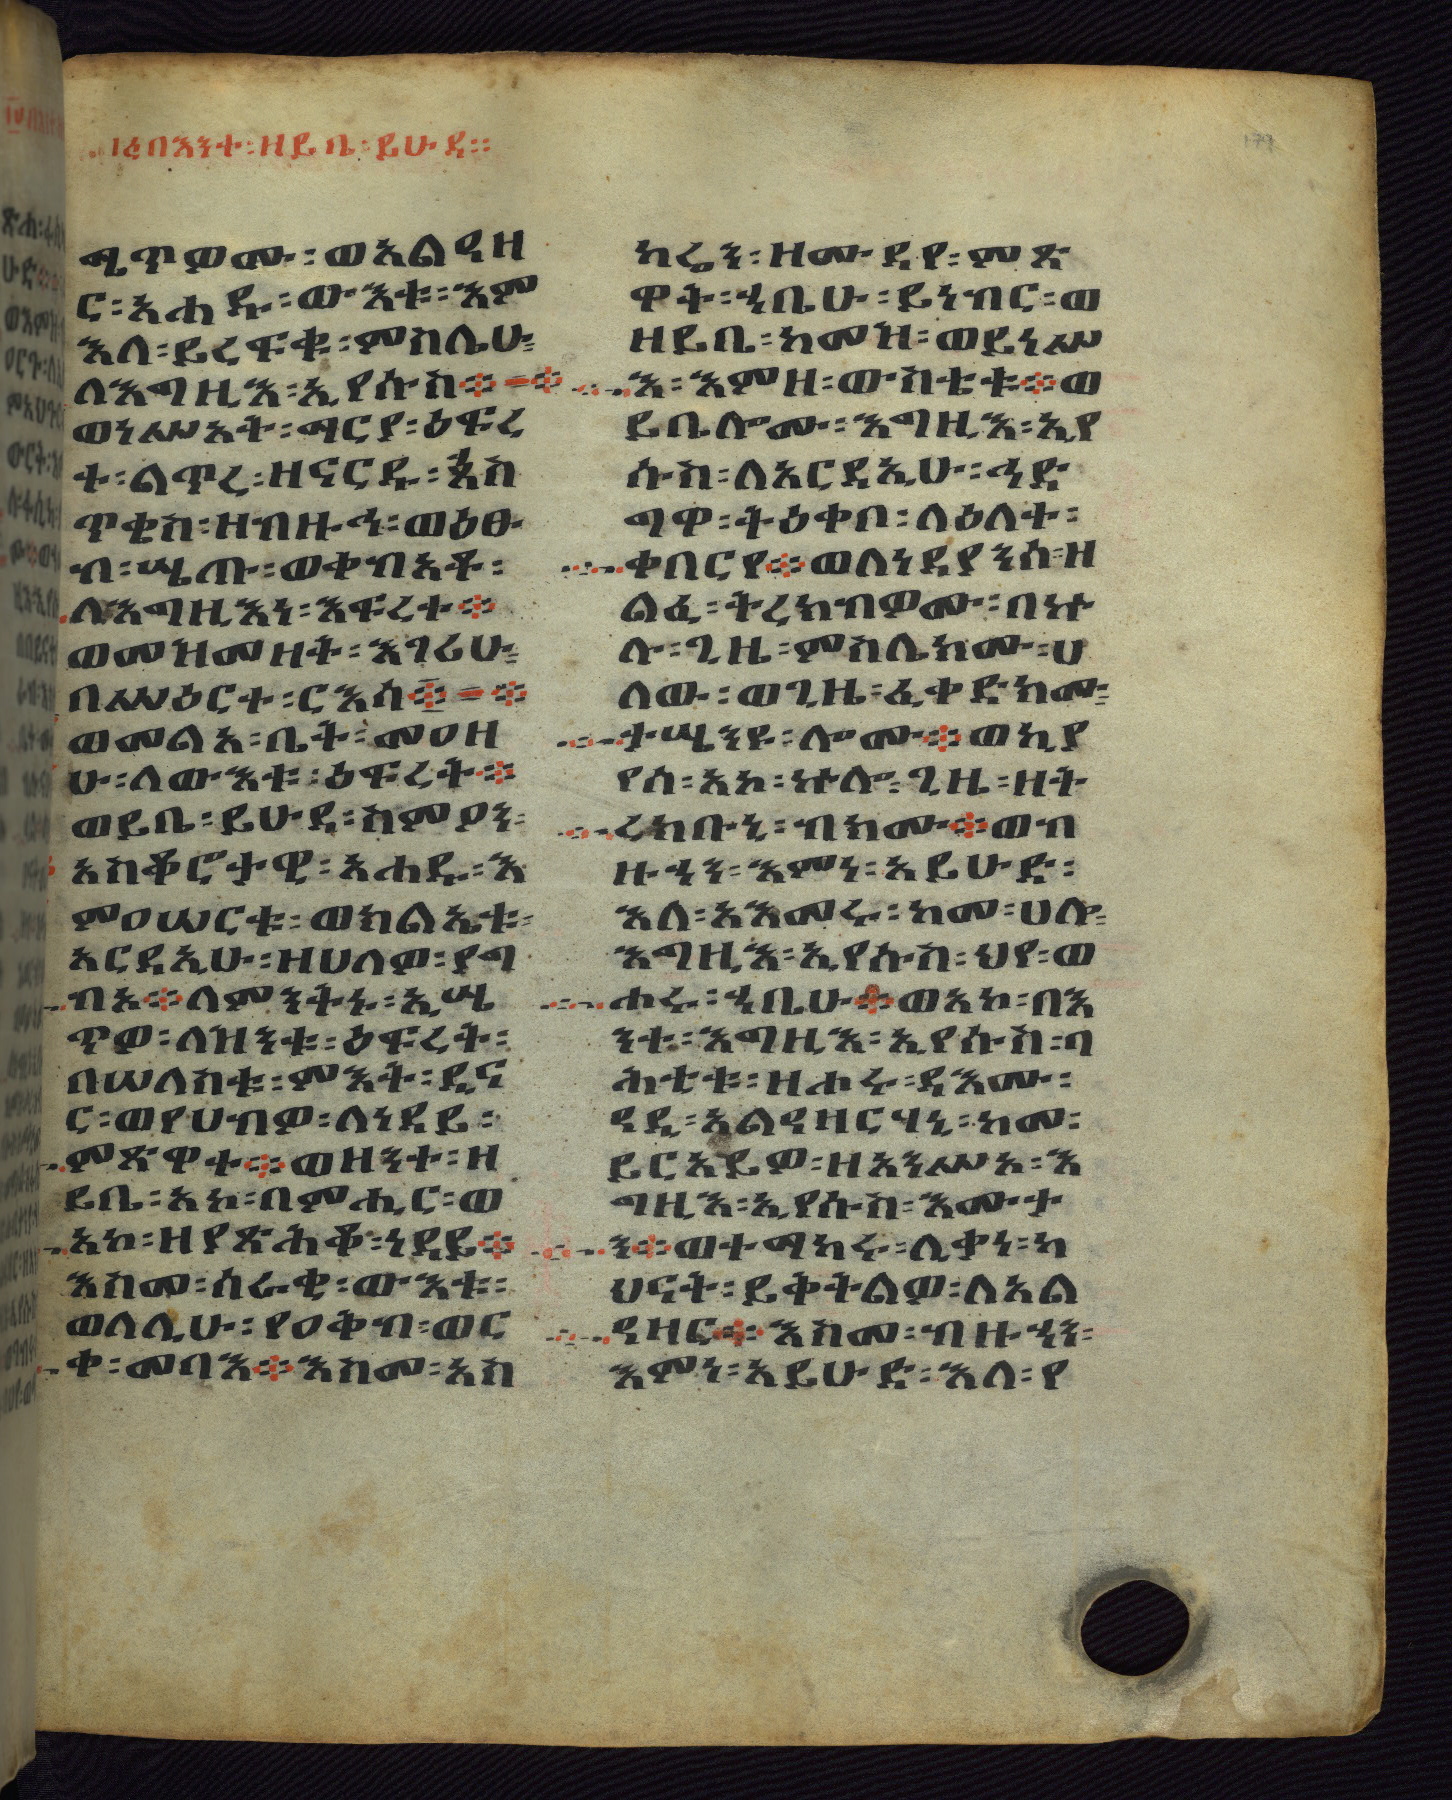 በእንተ፡ዘይቤ፡ይሁዳ፡፡
ሜጥዎሙ፡ወአልዓዛ
ር፡አሐዱ፡ውእቱ፡እም
እለ፡ይረፍቁ፡ምስሌሁ፡
ለእግዚእ፡ኢየሱስ፨
ወነሥአት፡ማርያ፡ዕፍረ
ተ፡ልጥረ፡ዘናርዱ፡
ጥቂስ፡ዘብዙኅ፡ወዕፁ
ብ፡ሤጡ፡ወቀብአቶ፡
ለእግዚእነ፡እፍረተ፨
ወመዝመዘት፡እገሪሁ፡
በሥዕርተ፡ርእሳ፨
ወመልአ፡ቤት፡መዐዛ
ሁ፡ለውእቱ፡ዕፍረት፨
ወይቤ፡ይሁዳ፡ስምዖን፡
አስቆሮታዊ፡አሐዱ፡እ
ምዐሠርቱ፡ወክልኤቱ፡
አርዳኢሁ፡ዘሀለዎ፡ያግ
ብአ፨ለምንትኑ፡ኢሤ
ጥዎ፡ለዝንቱ፡ዕፍረት፡
በሠለስቱ፡ምእት፡ዲና
ር፡ወየሀብዎ፡ለነዳይ፡
ምጽዋተ፨ወዘንተ፡ዘ
ይቤ፡አኮ፡በምሒር፡ወ
አኮ፡ዘያጽሕቆ፡ነዳይ፨
እስመ፡ሰራቂ፡ውእቱ፡
ወለሊሁ፡የዐቅብ፡ወር
ቀ፡መባእ፨እስመ፡አስ
ካሬን፡ዘሙዳየ፡ምጽ
ዋት፡ኀቤሁ፡ይነብር፡ወ
ዘይቤ፡ከመዝ፡ወይነሥ
እ፡እምዘ፡ውስቴቱ፨ወ
ይቤሎሙ፡እግዚእ፡ኢየ
ሱስ፡ለአርዳኢሁ፡ኅድ
ግዋ፡ትዕቀበ፡ለዕለተ፡
ቀበርየ፨ወለነዳያንሰ፡ዘ
ልፈ፡ትረክብዎሙ፡በኵ
ሉ፡ጊዜ፡ምስሌክሙ፡ሀ
ለው፡ወጊዜ፡ፈቀድክሙ፡
ታሤንዩ፡ሎሙ፨ወኪያ
የሰ፡አኮ፡ኵሎ፡ጊዜ፡ዘት
ረክቡኒ፡ብክሙ፨ወብ
ዙኃን፡እምነ፡አይሁድ፡
እለ፡አእመሩ፡ከመ፡ሀሎ፡
እግዚእ፡ኢየሱስ፡ህየ፡ወ
ሐሩ፡ኀቤሁ፨ወአኮ፡በእ
ንተ፡እግዚእ፡ኢየሱስ፡ባ
ሕቲቱ፡ዘሐሩ፡ዳእሙ፡
ዓዲ፡አልዓዛርሃኒ፡ከመ፡
ይርአይዎ፡ዘአንሥአ፡እ
ግዚእ፡ኢየሱስ፡እሙታ
ን፨ወተማከሩ፡ሊቃነ፡ካ
ህናት፡ይቅትልዎ፡ለአል
ዓዛር፨እስመ፡ብዙኃን፡
እምነ፡አይሁድ፡እለ፡የ